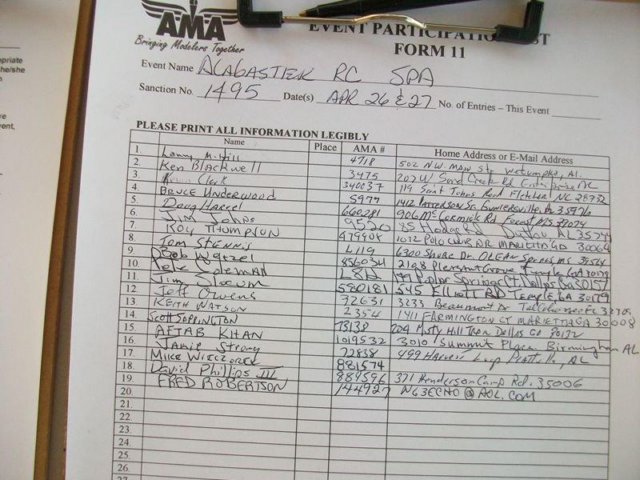 AMA
Bringing Modelers Together
EVENT PARTICIPATION
FORM 11
Event Name ALABASTER RC SPA
Sanction No. 1495 Date(s) APR 26 & 27 No. of Entries – This Event
PLEASE PRINT ALL INFORMATION LEGIBLY
Name Place AMA # Home Address or E-Mail Address
1. Lanny M. Hill 4718 502 N.W. MAIN St. Wetumpka, AL.
2. Ken Blackwell 3475
3. Clark 340037 119 Saint Johns Rd Fletcher NC 28732
4. BRUCE UNDERWOOD 5977 1412 PATTERSON St. Guntersville, AL 35976
5. Doug Harrel 660281 906 McCormick Rd
6. JIM Johns 9520 85
7. ROY THOMPSON 479904 1072 POLO CLUB DR MARIETTA GA 30064
8. TOM STENNIS L119 6300 Shore Dr. OLEAN Springs MS 39564
9. Bob Wetzel 856034 2108 Pleasant Grove Temple GA 30179
10. Pete Coleman L8H Springs
11. Jim Slocum 580181 245 Elliott RD Temple, GA 30179
12. Jeff Owens 72631 3233 Beaumont Dr Tallahassee FL
13. KEITH WATSON 2354 1411 FARMINGTON CT MARIETTA GA 30008
14. SCOTT SOPPINGTON 73138 204 Misty Hill Trce Dallas Ga 30132
15. AFTAB KHAN 1019532 3010 Summit Place Birmingham AL
16. Jamie Strong 72838 499 Loop AL
17. MIKE 881574
18. David Phillips III 884596 371 Henderson Camp Rd. 35006
19. FRED ROBERTSON 144927 N63ECHO@AOL.COM
20.
21.
22.
23.
24.
25.
26.